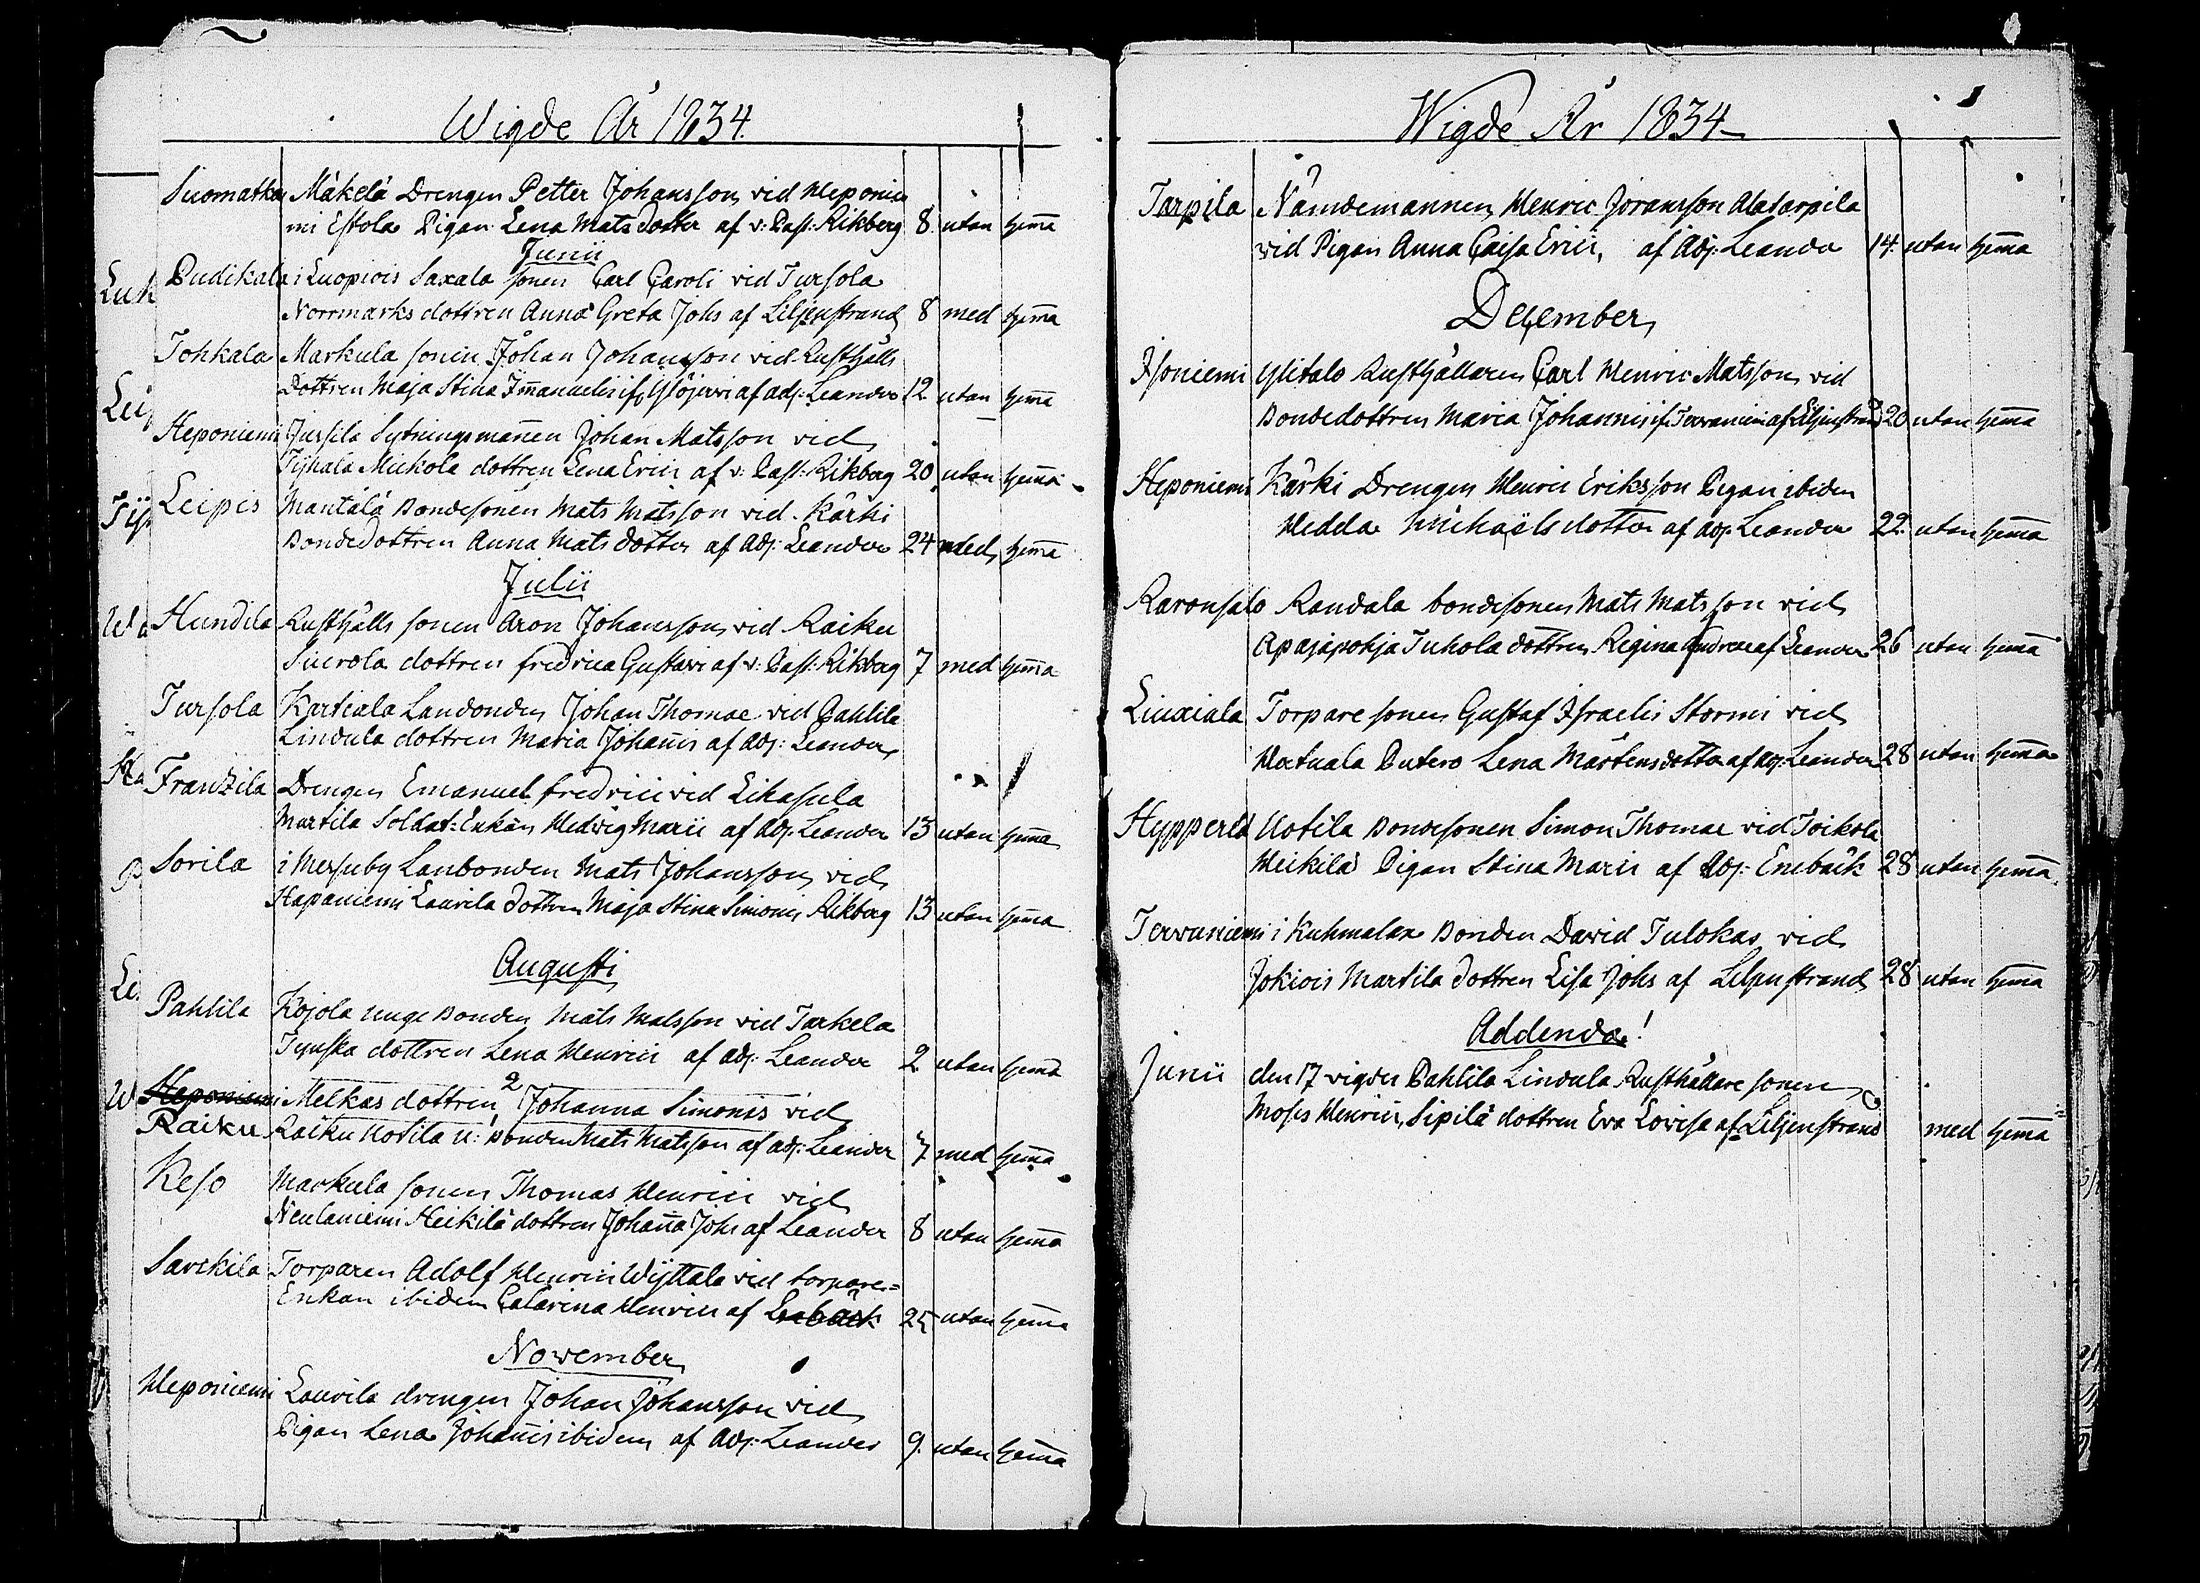 Wigde År 1834.
Suomatka Mäkelä Drengen Petter Johansson vid Heponie
mi Estola Pigan Lena Matsdotter af v: Past: Rikberg 8. utan hema
Junii
Pudikala i Luopiois Saxala sonen Carl Caroli vid Tursola
Norrmarks dottren Anna Greta Johs af Liljenstrand 8 med hema
Tohkala Markula sonen Johan Johansson vid Rusthålls
Dottren Maja Stina Imanuelis if. Ylöjervi af adj: Leander 12 utan hema
Heponiemi Jussila Sytningsmanen Johan Matsson vid
Mickola dottren Lena Erici af v: Past: Rikberg 20 utan hema
Leipis Mantälä Bondesonen Mats Matsson vid Kärki
Bondedottren Anna Matsdotter af Adj: Leander 24 med hema
Julii
Hundila Rusthålls sonen Aron Johansson vid Raiku
dottren fredrica Gustavi af v: Past: Rikberg 7 med hema
Tursola Kartiala Landbonden Johan Thomae vid Pahlila
Lindula dottren Maria Johanis af Adj: Leander
Franzila Drengen Emanuel fredrici vid Likasula
Martila Soldat: Enkan Hedvig Marii af Adj: Leander 13 utan hema
Sorila i Mersuby Lanbonden Mats Johansson vid
Hapaniemi Laurila dottren Maja Stina Simonis Rikberg 13 utan hema
Augusti
Pahlila Kojola unge Bonden Mats Matsson vid Tarkela
Tynska dottren Lena Henrici af adj: Leander 2 utan hema
Heponiemi Melkas dottren 2 Johanna Simonis vid
Raiku Raiku Uotila u: Bonden Mats Matsson af adj: Leander 7 med hema
Keso Markula sonen Thomas Henrici vid
Neulaniemi Heikilä dottren Johana Johs af Leander 8 utan hema
Savikila Torparen Adolf Henrici Wijttala vid torpare=
Enkan ibidem Catarina Henrici af Enebäck 25 utan hema
November
Heponiemi Laurila drengen Johan Johansson vid
Pigan Lena Johanis ibidem af Adj: Leander 9. utan hema
Wigde År 1834
Tarpila Nämdemannen Henric Joransson Alatarpila
vid Pigan Anna Caisa Erici, af Adj: Leander 14. utan hema
December
Isoniemi Ylitalo Rusthållaren Carl Henric Matsson vid
Bondedottren Maria Johannis if. Tervaniemi af Liljenstrand 20 utan hema
Heponiemi Kärki Drengen Henric Eriksson Pigan ibidem
Hedda Michaëls dotter af Adj: Leander 22. utan hema
Karonsalo Randala bondesonen Mats Matsson vid
Apajapohja Tuhola dottren Regina Andreae af Leander 26 utan hema
Liuxiala Torpare sonen Gustaf Israelis Stormi vid
Lena Mårtensdotter af Adj: Leander 28 utan hema
Hypperilä Uotila Bondesonen Simon Thomae vid Toikola
Heikilä Pigan Stina Marii af Adj: Enebäck 28 utan hema
Tervaniemi i Kuhmalax Bonden David Tulokas vid
Jokiois Martila dottren Lisa Johs af Liljenstrand 28 utan hema
Addenda!
Junii den 17 vigdes Pahlila Lindula Rusthållare sonen
Moses Henrici, Sipilä dottren Eva Lovisa af Liljenstrand med hema